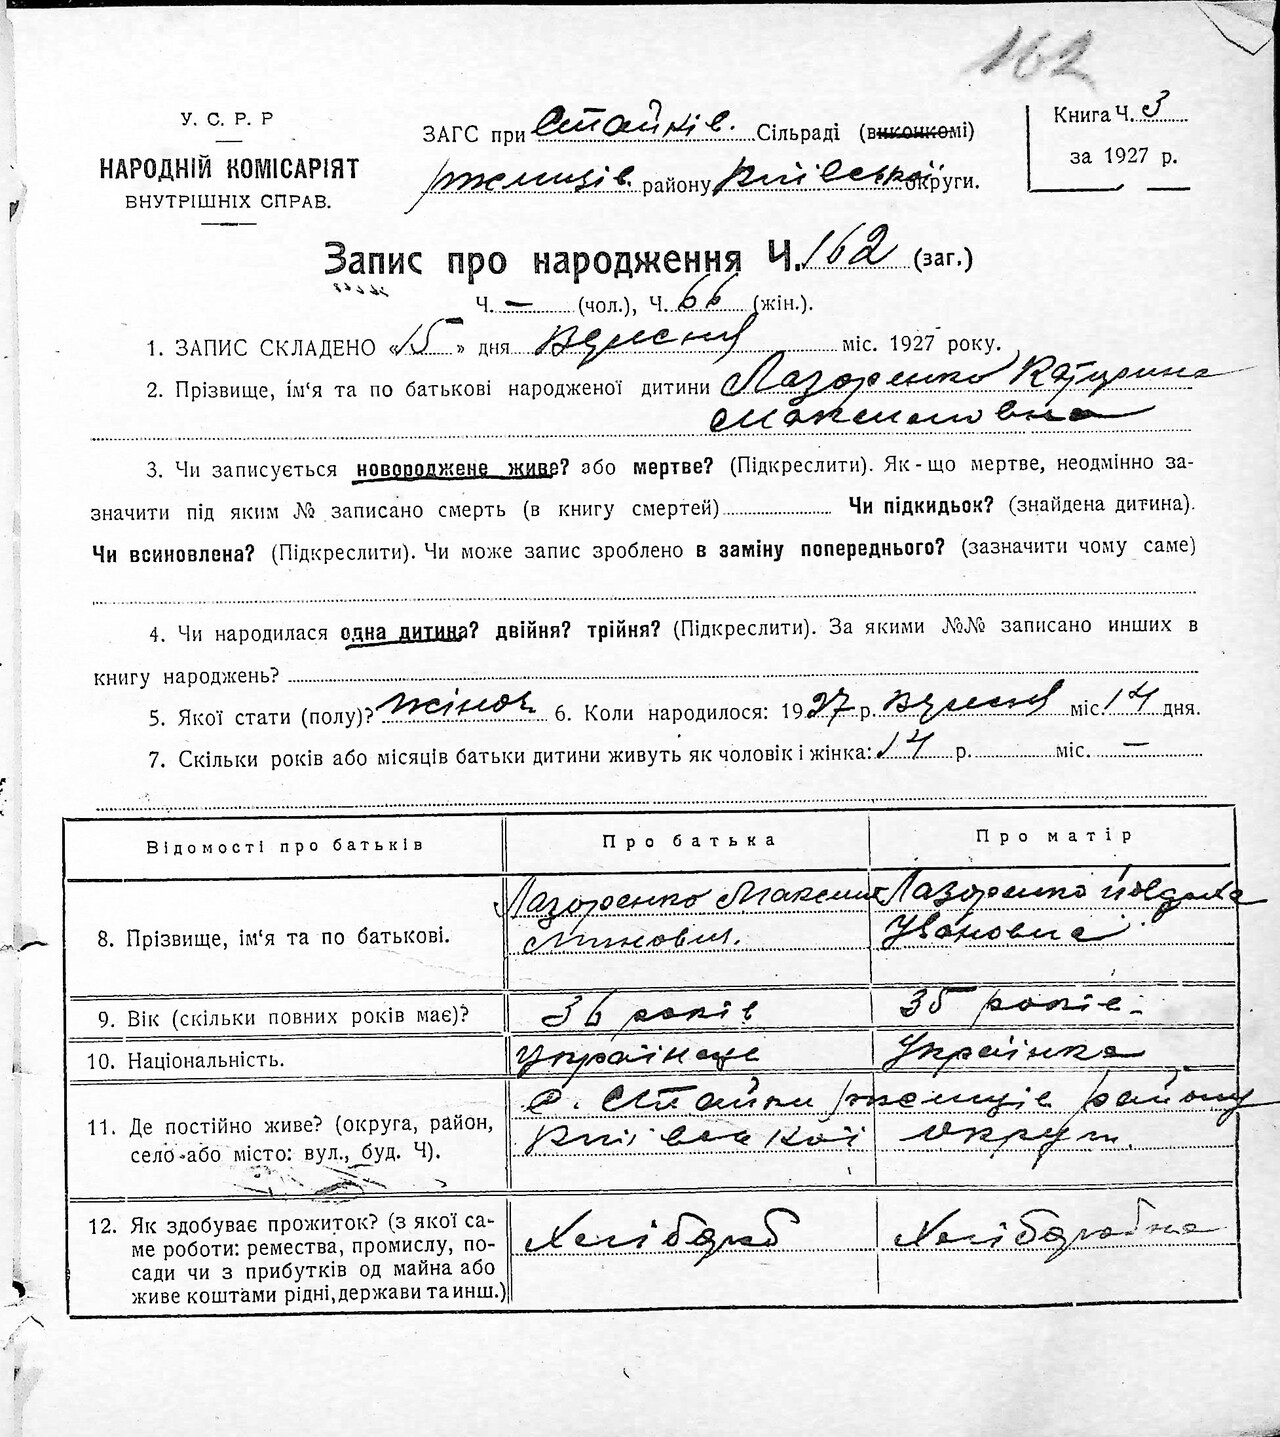 162
У. С. Р. Р
НАРОДНІЙ КОМІСАРІЯТ
ВНУТРІШНІХ СПРАВ.
ЗАГС при Стайків. Сільраді (виконкомі)
Ржищів. району Київської округи.
Книга Ч. 3
за 1927 р.
Запис про народження Ч. 162 (заг.)
Ч. — (чол.), Ч. 66 (жін.).
1. ЗАПИС СКЛАДЕНО «15» дня Вересня міс. 1927 року.
2. Прізвище, ім‘я та по батькові народженої дитини Лазоренко Катерина
Максимовна
3. Чи записується новороджене живе? або мертве? (Підкреслити). Як-що мертве, неодмінно за-
значити під яким № записано смерть (в книгу смертей) Чи підкидьок? (знайдена дитина).
Чи всиновлена? (Підкреслити). Чи може запис зроблено в заміну попереднього? (зазначити чому саме)
4. Чи народилася одна дитина? двійня? трійня? (Підкреслити). За якими №№ записано инших в
книгу народжень?
5. Якої стати (полу)? жіноч. 6. Коли народилося: 1927 р. Вересня міс. 14 дня.
7. Скільки років або місяців батьки дитини живуть як чоловік і жінка: 14 р. міс. —
Відомості про батьків Про батька Про матір
8. Прізвище, ім‘я та по батькові. Лазоренко Максим Лазоренко
Ивановна
9. Вік (скільки повних років має)? 36 років 35 років.
10. Національність. Українец Українка
11. Де постійно живе? (округа, район, с. Стайки Ржищів району
село або місто: вул., буд. Ч). Київської округи.
12. Як здобуває прожиток? (з якої са- Хлібороб Хліборобка
ме роботи: ремества, промислу, по-
сади чи з прибутків од майна або
живе коштами рідні, держави та инш.)